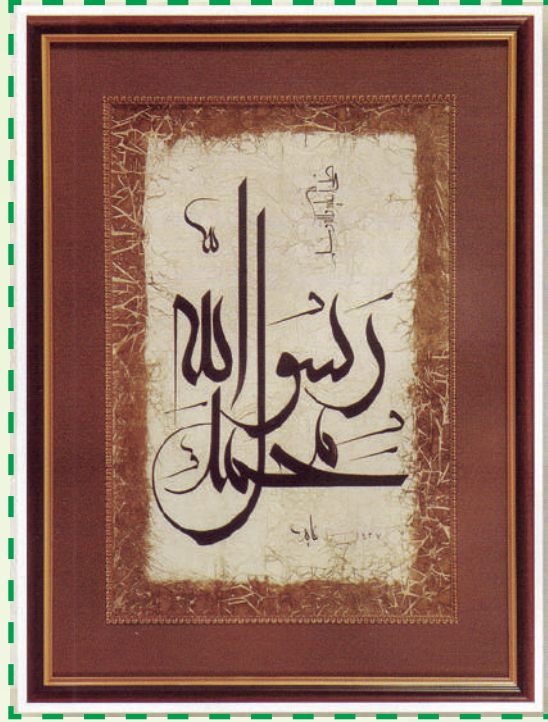 محمد رسول الله
١٤٢٧